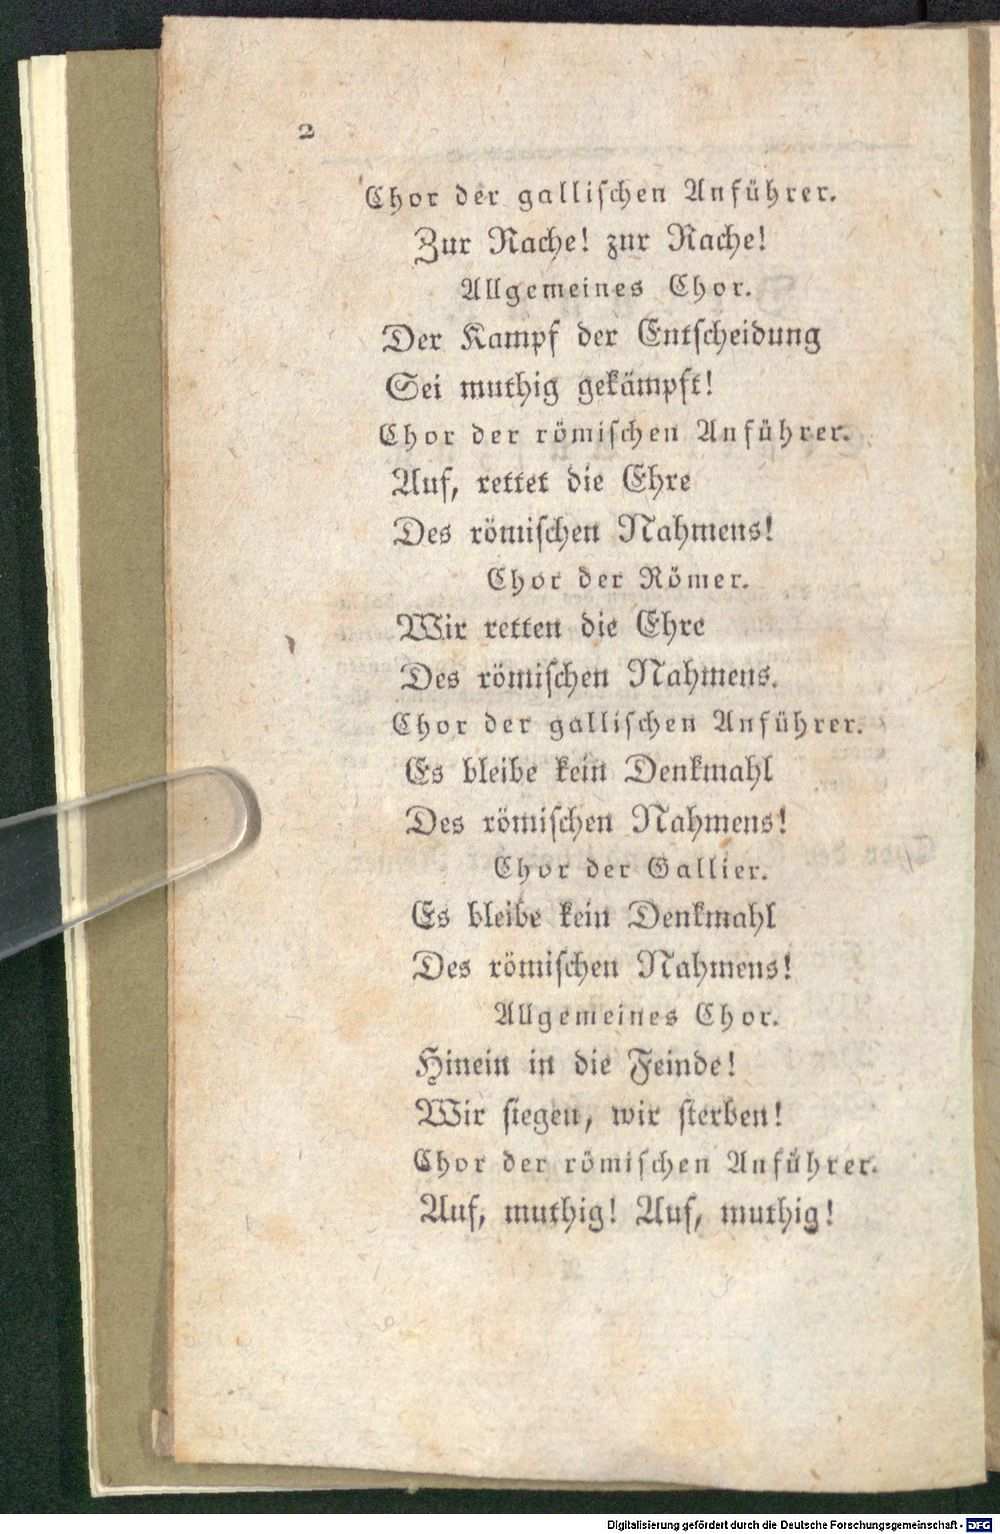 2
Chor der gallischen Anführer.
Zur Rache! zur Rache!
Allgemeines Chor.
Der Kampf der Entscheidung
Sei muthig gekämpft!
Chor der römischen Anführer.
Auf, rettet die Ehre
Des römischen Nahmens!
Chor der Römer.
Wir retten die Ehre
Des römischen Nahmens.
Chor der gallischen Anführer.
Es bleibe kein Denkmahl
Des römischen Nahmens!
Chor der Gallier.
Es bleibe kein Denkmahl
Des römischen Nahmens!
Allgemeines Chor.
Hinein in die Feinde!
Wir siegen, wir sterben!
Chor der römischen Anführer.
Auf, muthig! Auf, muthig!
Digitalisierung gefördert durch die Deutsche Forschungsgemeinschaft - DFG